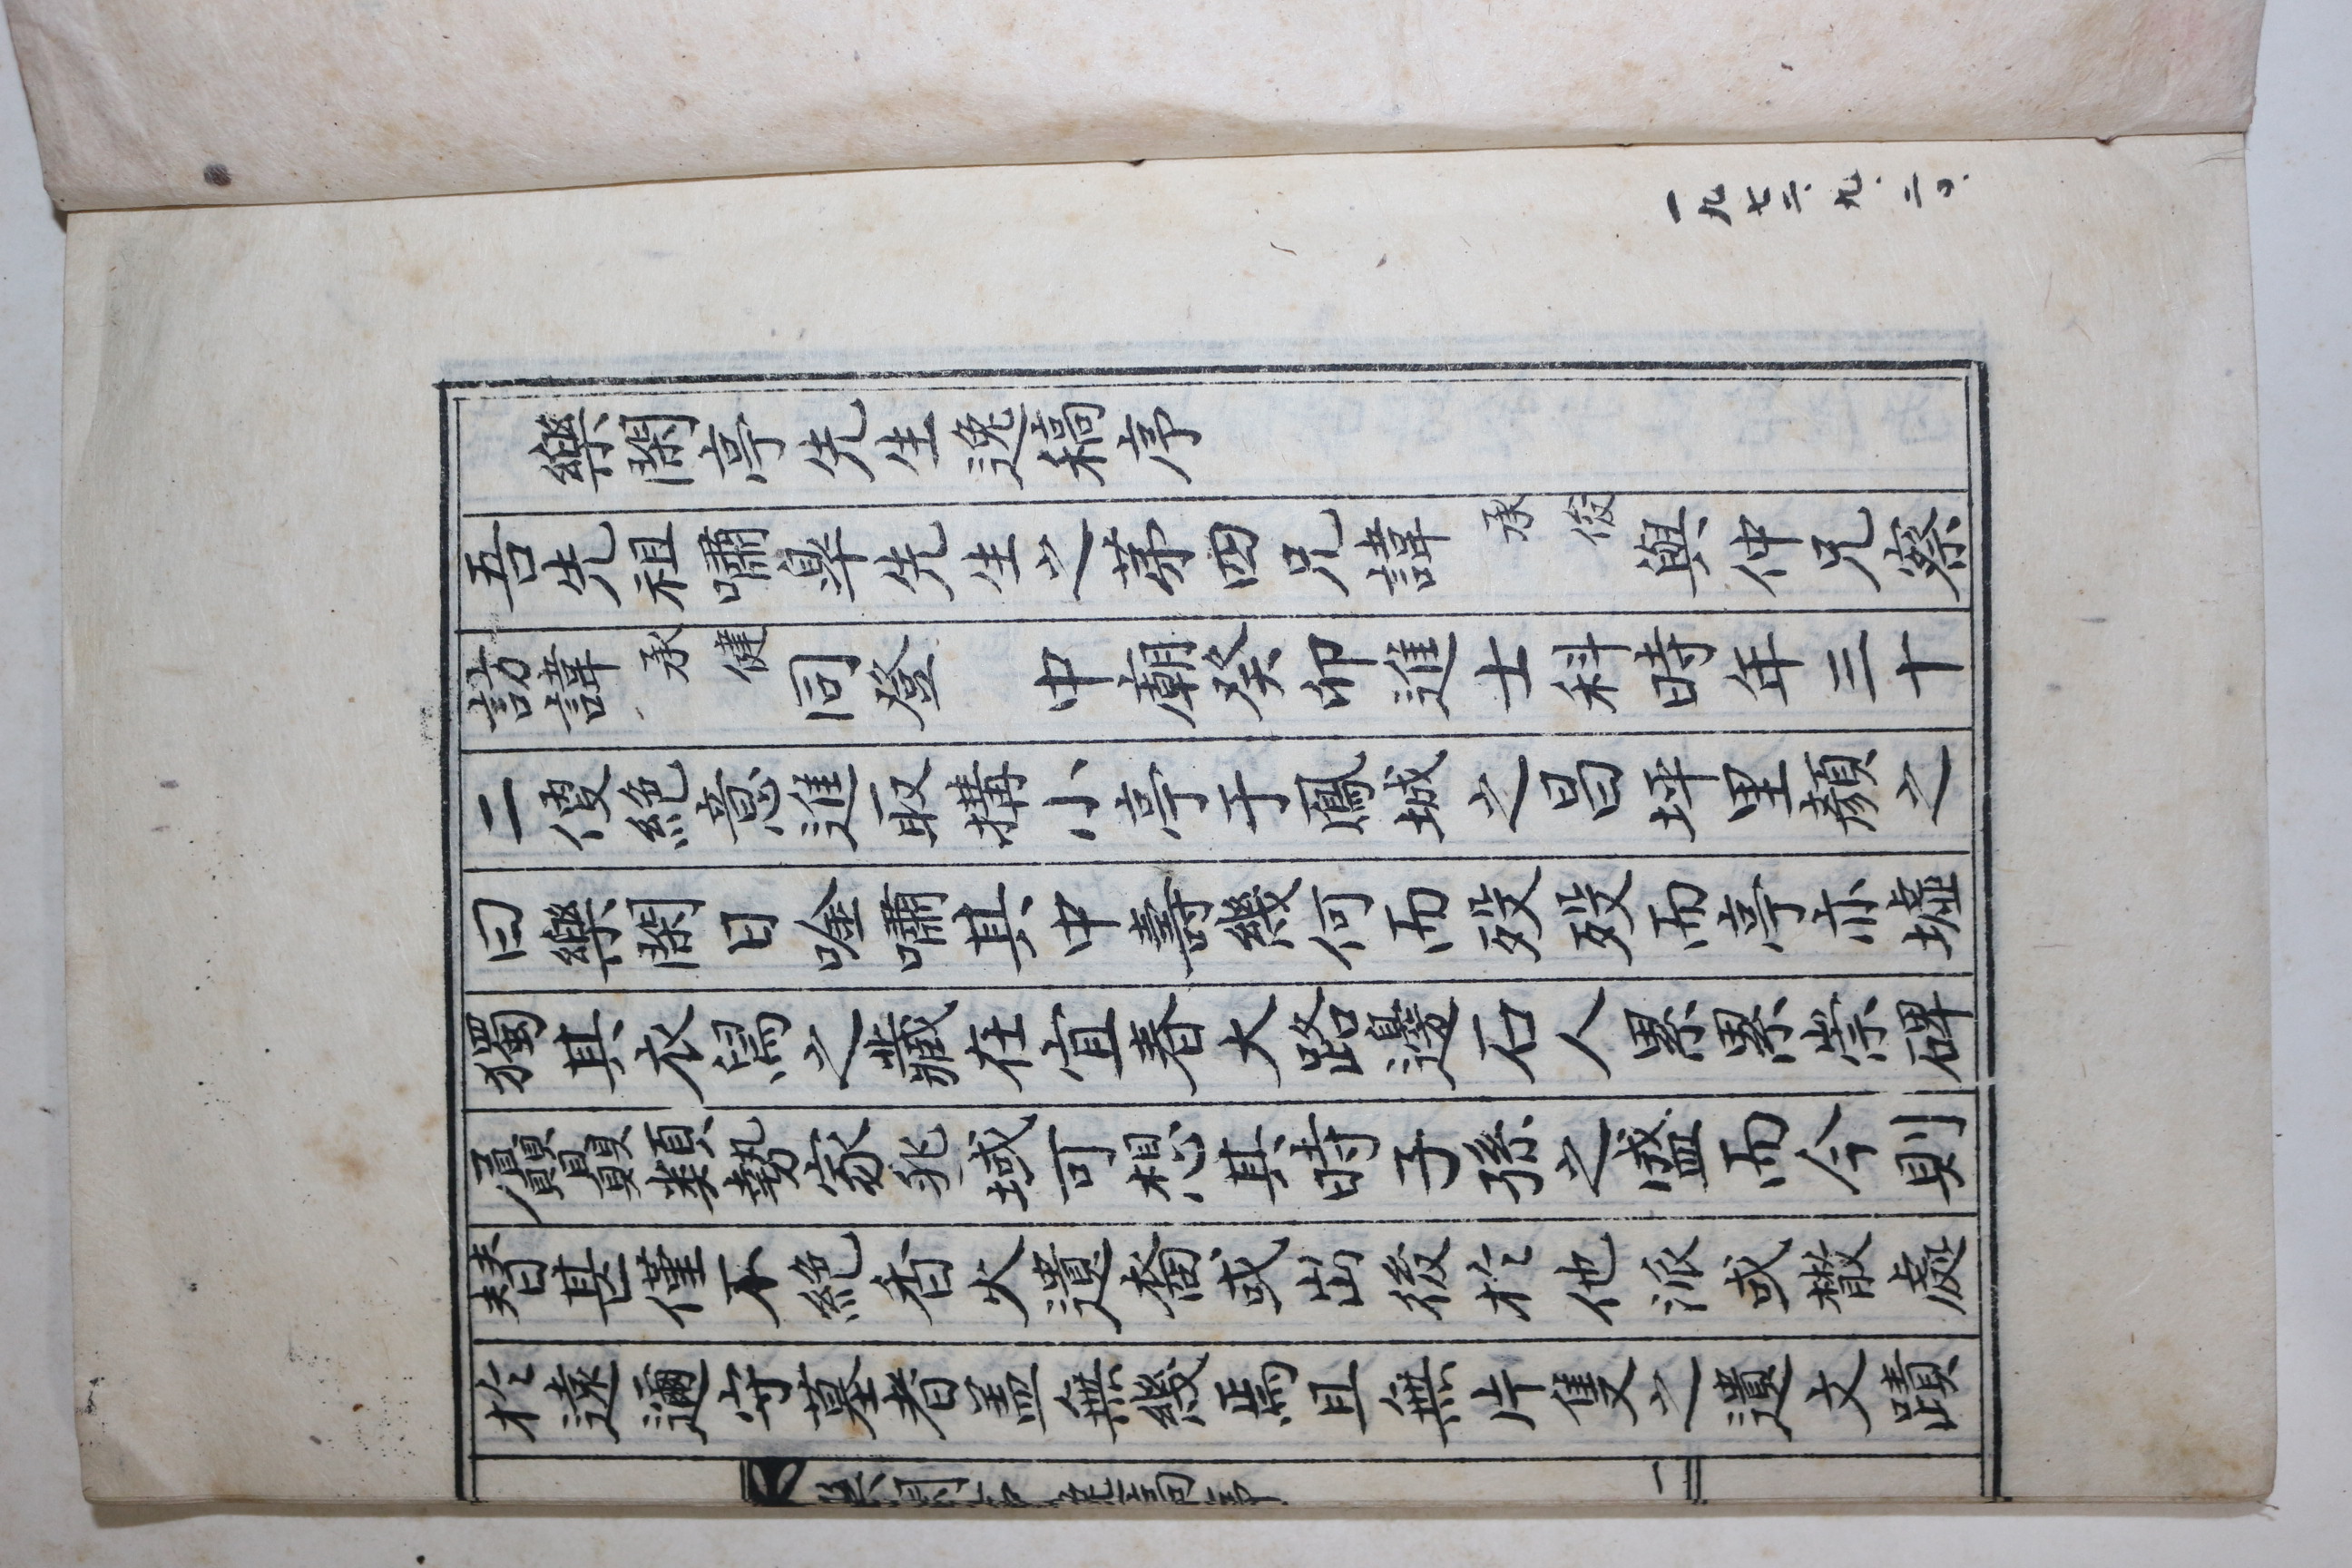 一九七二、九.二〇.
樂閑亭先生逸稿序
吾先祖嘯皋先生之第四兄諱承俊與仲兄察
訪諱承健同登 中廟癸卯進士科時年三十
二便絶意進取構小亭于鳳城之昌坪里顔之
曰樂閑日唫嘯其中壽幾何而歿歿而亭亦墟
獨其衣舃之藏在宜春大路邊石人累累崇碑
屭贔類勢家兆域可想其時子孫之盛而今則
替甚僅不絶香火遺裔或出後於他派或散處
於遠邇守墓者盖無幾焉且無片隻之遺文蹟
樂閑亭逸稿序 一